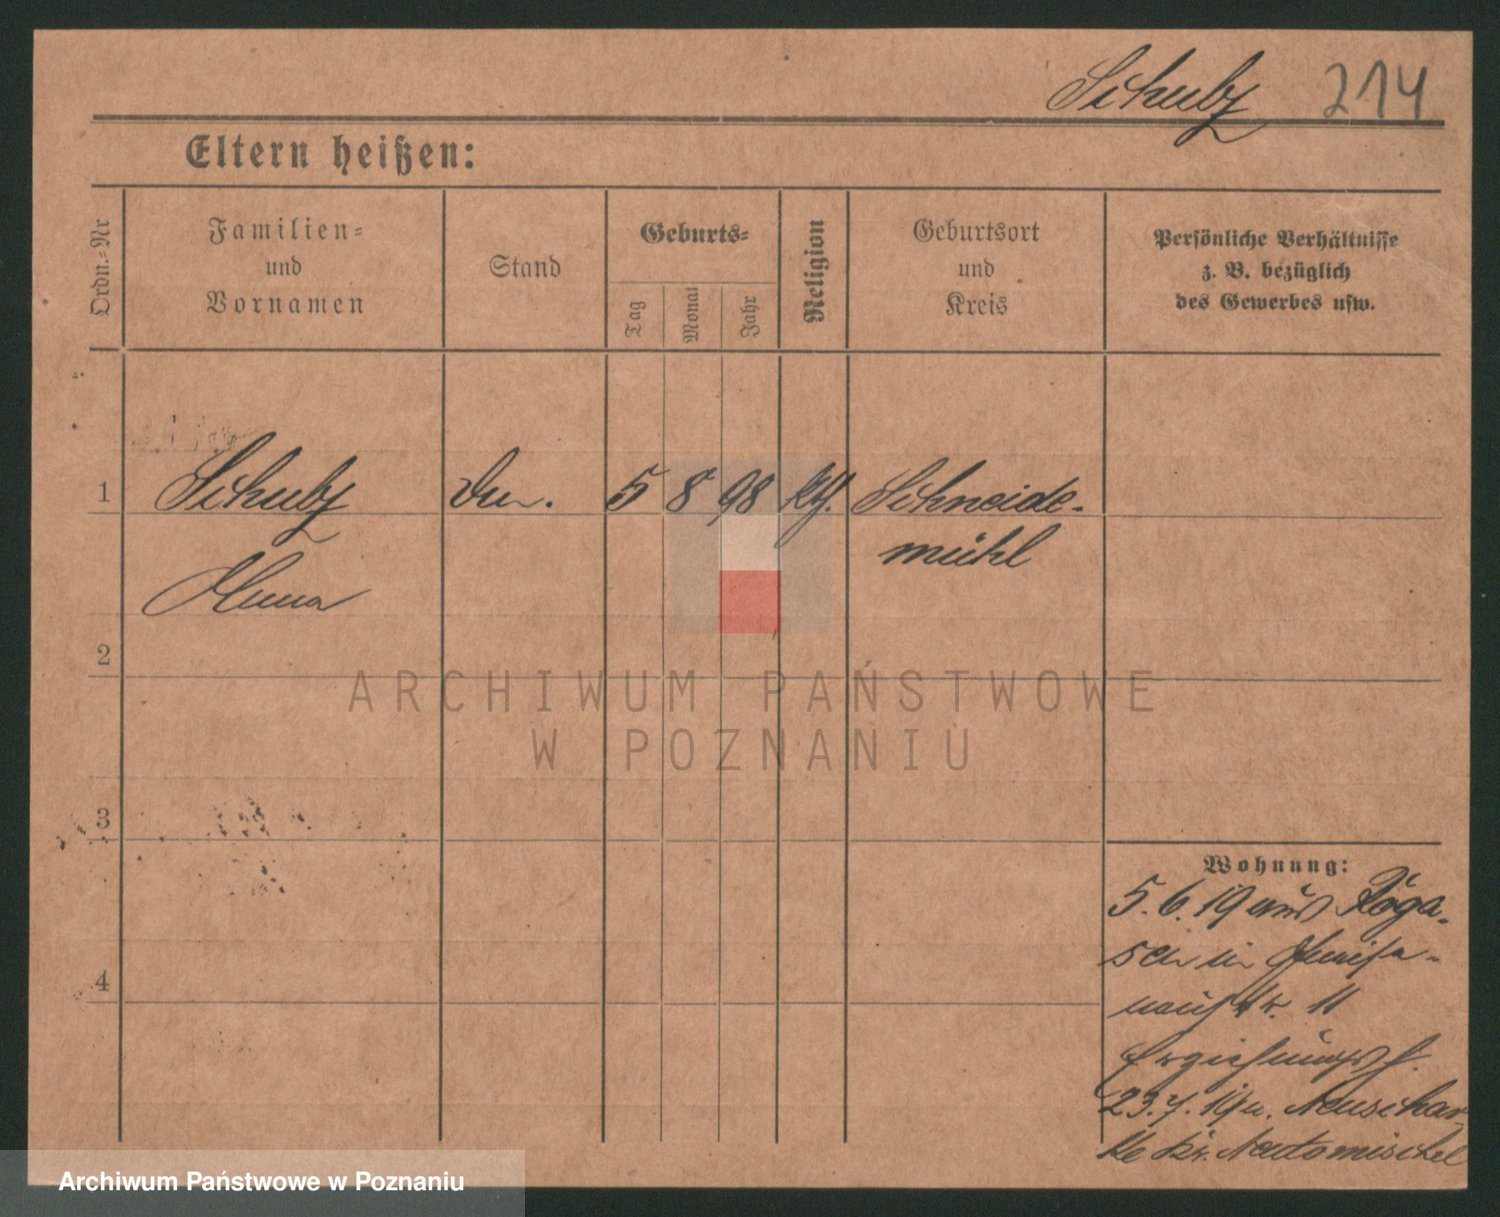 Schulz 214
Eltern heißen:
Ordn.-Nr
Familien-
und
Vornamen
Stand
Geburts-
Tag
Monat
Jahr
Religion
Geburtsort
und
Kreis
Persönliche Verhältnisse
z. B. bezüglich
des Gewerbes usw.
1 Schulz 5 8 98 kth. Schneide-
mühl
2
3
4
ARCHIWUM PAŃSTWOWE
W POZNANIU
Wohnung:
5. 6. 19 aus
in
str. 11
Erziehungs
23. 7. 19 n.
Kr. Neutomischel
Archiwum Państwowe w Poznaniu